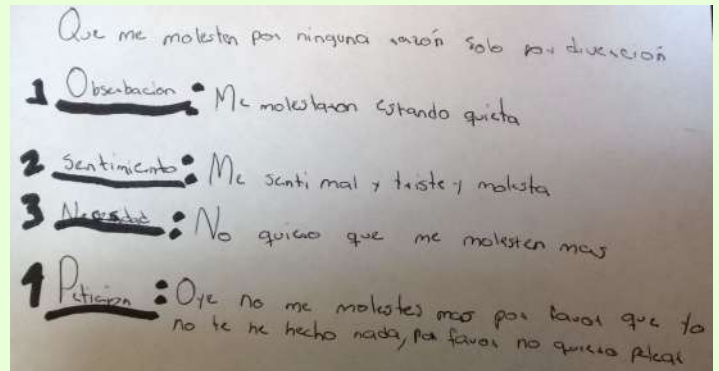 Que me molesten por ninguna razón solo por diverción
1 Obserbacion: Me molestaron estando quieta
2 Sentimiento: Me senti mal y triste y molesta
3 Necesidad: No quiero que me molesten mas
4 Peticion: Oye no me molestes mas por favor que yo
no te he hecho nada, por favor no quiero pelear